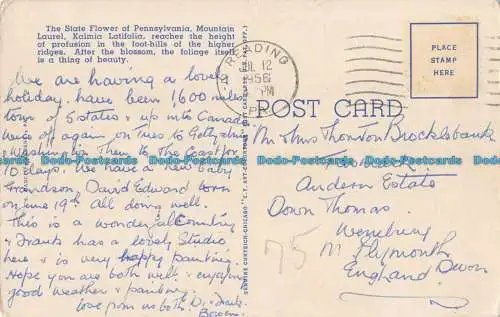 The State Flower of Pennsylvania, Mountain
Laurel, Kalmia Latifolia, reaches the height
of profusion in the foot-hills of the higher
ridges. After the blossom, the foliage itself
is a thing of beauty.
READING
JUL 12
PM
1956
PA.
PLACE
STAMP
HERE
POST CARD
We are having a lovely
holiday. have been 1,600 miles
tour of 5 states & up into Canada
off again on Tues to
Washington Then to The Coast for
10 days. We have a new baby
Grandson, David Edward born
on June 19th all doing well.
This is a wonderful Country
Frank has a lovely Studio
here & is very happy painting.
Hope you are both well & enjoying
good weather & painting.
Love from us both D. & Frank.
Mr & Mrs Thornton Brocklebank
Andern Estate
Down Thomas.
Wembury
Nr Plymouth
England Devon
75
Dodo-Postcards